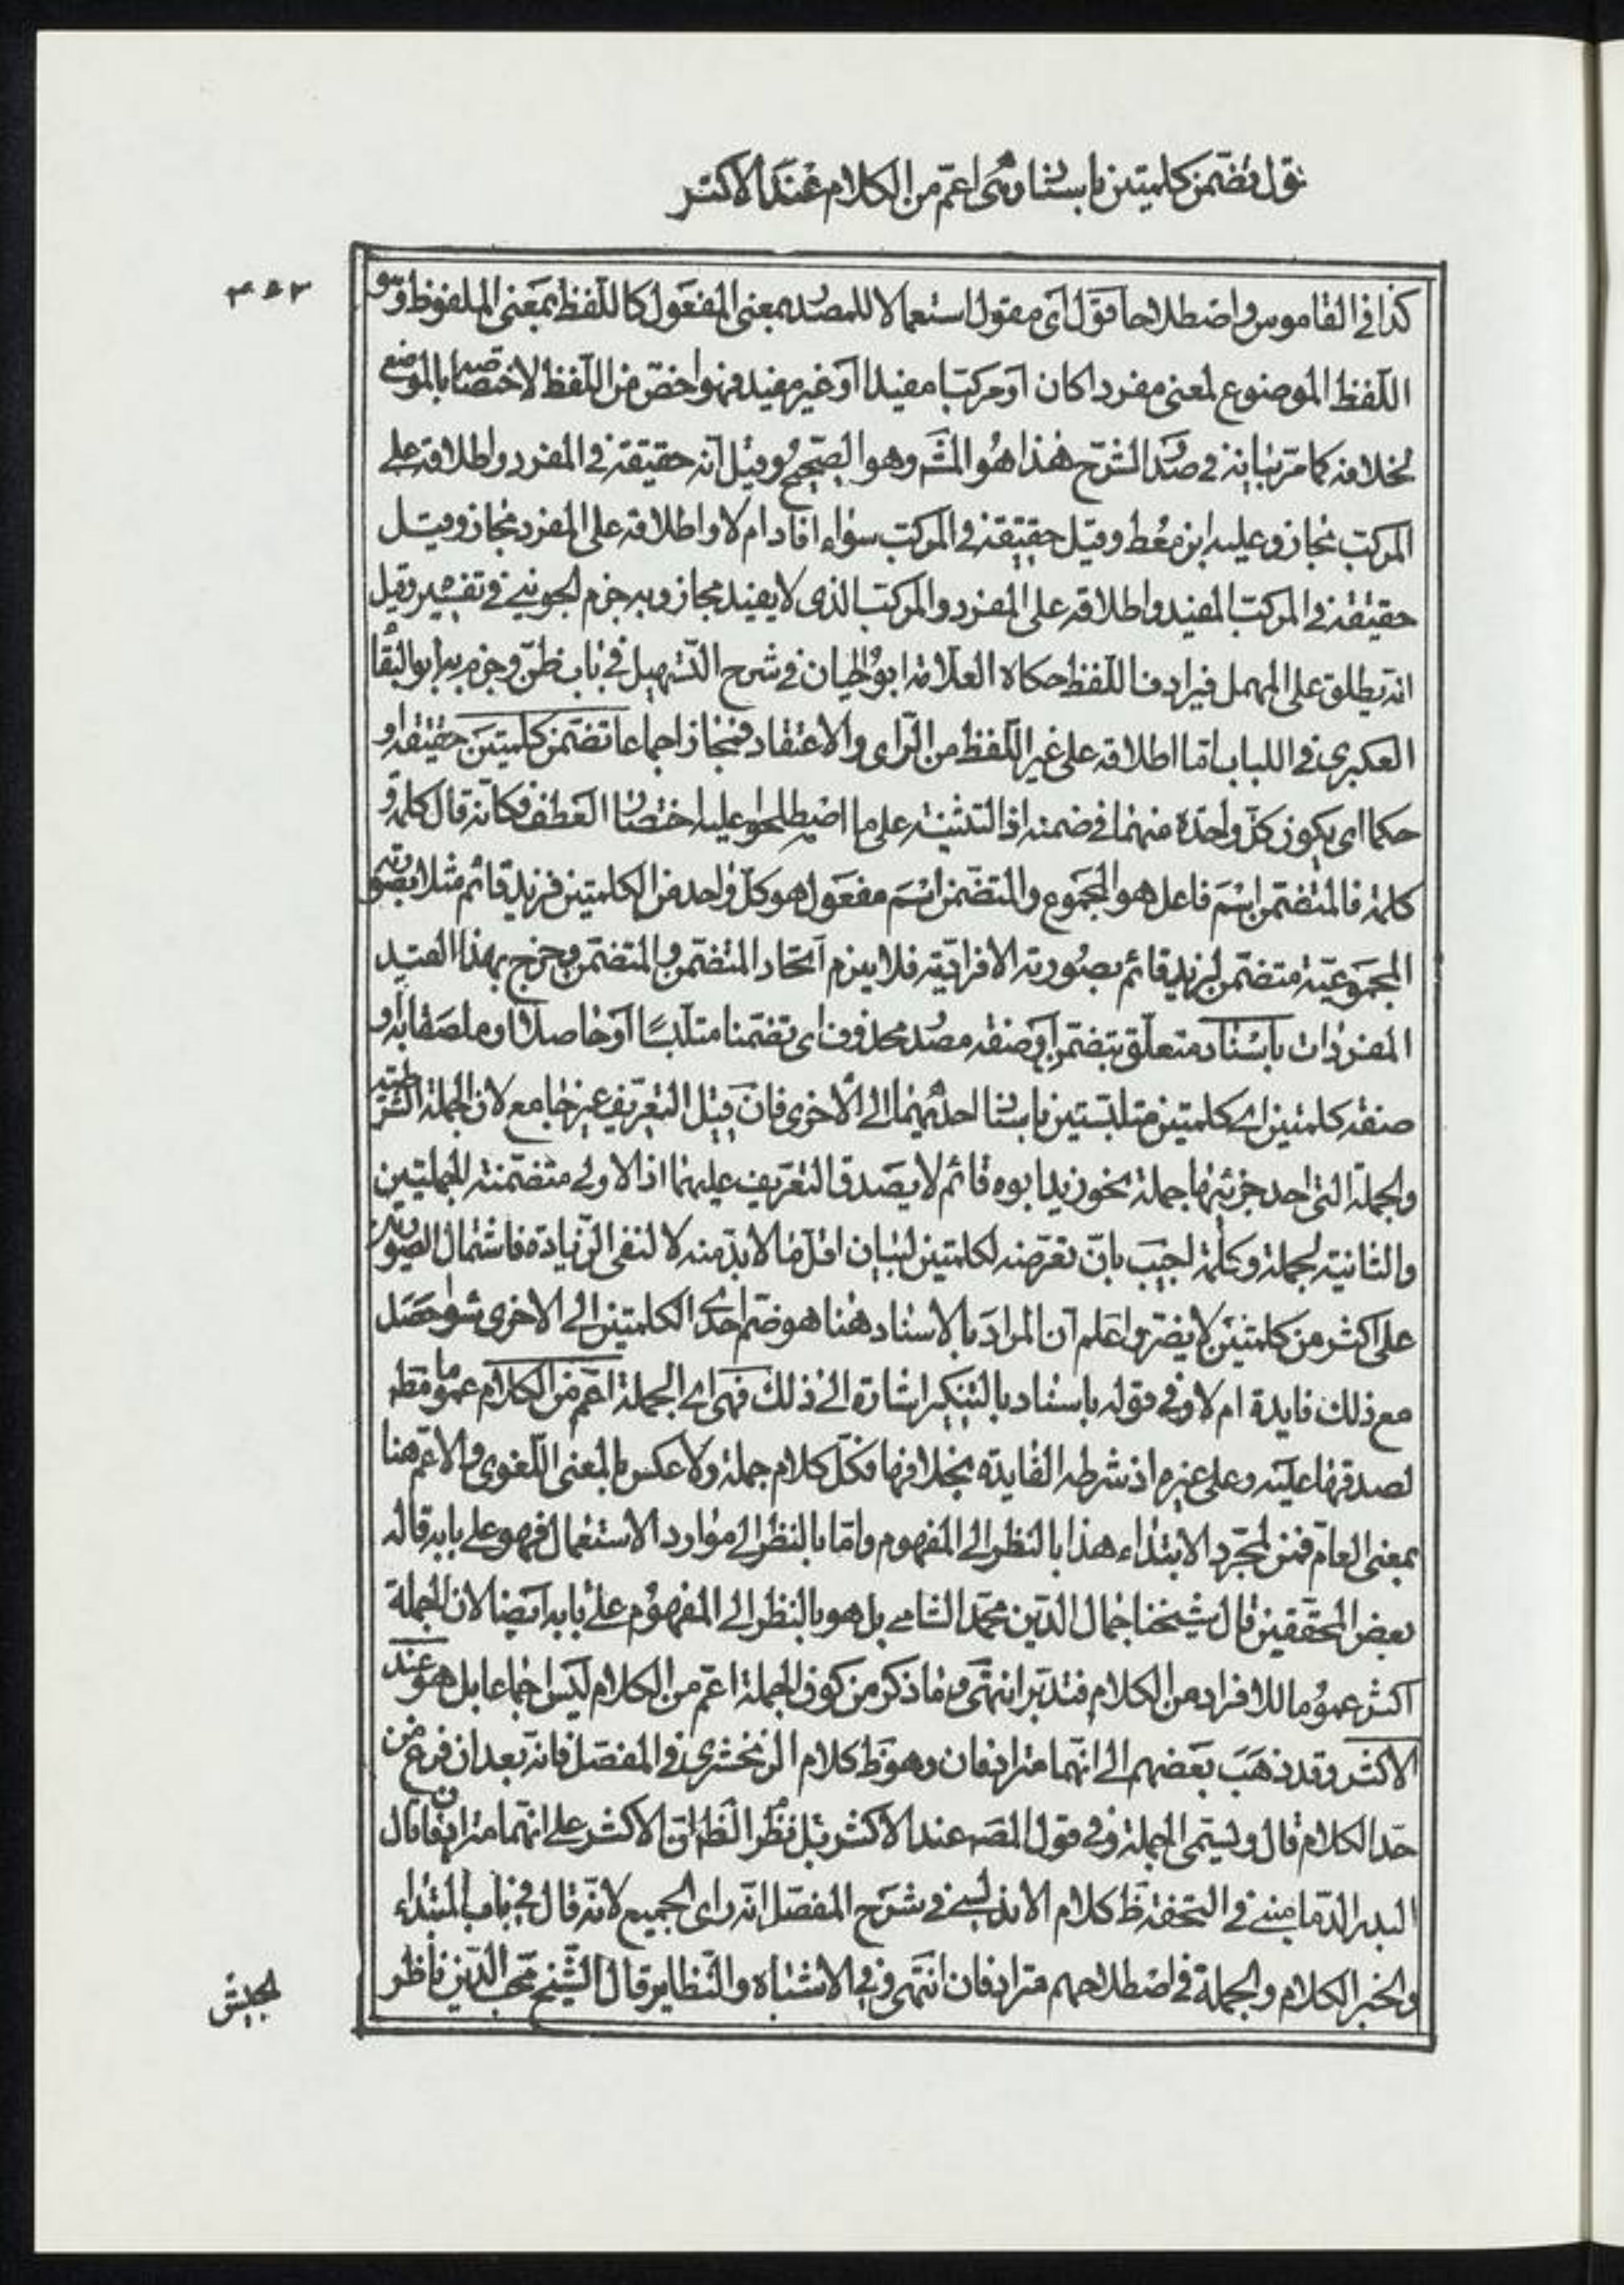 قول تضمن كلمتين باسناد وهى اعمّ من الكلام عند الاكثر
كذا فى القاموس واصطلاحا قول اى مقول استعمالا للمصدر بمعنى المفعول كاللفظ بمعنى الملفوظ وهو
اللفظ الموضوع لمعنى مفردا كان او مركبا مفيدا او غير مفيد فهو اخصّ من اللفظ لاختصاصه بالموضوع
بخلافه كما مرّ بيانه فى صدر الشرح هذا هو المشه وهو الصحيح وقيل انه حقيقة فى المفرد واطلاقه على
المركب مجاز وعليه ابن معط وقيل حقيقة فى المركب سواء افاد ام لا واطلاقه على المفرد مجاز وقيل
حقيقة فى المركب المفيد واطلاقه على المفرد والمركب الذى لا يفيد مجاز وبه جزم الجوينى فى تفسيره وقيل
انه يطلق على المهمل فيرادف اللفظ حكاه العلامة ابو الحيان فى شرح التسهيل فى باب ظنّ وجزم به ابو البقاء
العكبرى فى اللباب امّا اطلاقه على غير اللفظ من الرّاى والاعتقاد فمجاز اجماعا تضمّن كلمتين حقيقة او
حكما اى يكون كلّ واحدة منهما فى ضمنه اذ التثنية على ما اصطلحوا عليه اختصار العطف فكانه قال كلمة و
كلمة فالمتضمن اسم فاعل هو المجموع والمتضمن اسم مفعول هو كلّ واحد من الكلمتين فزيد قائم مثلا بصورته
المجموعيّة متضمّن لزيد قائم بصورته الافراديّة فلا يلزم اتحاد المتضمّن والمتضمّن وخرج بهذا القيد
المفردات باسناد متعلّق بتضمّن او صفة مصدر محذوف اى تضمّنا متلبّسًا او حاصلا او ملصقا به او
صفة كلمتين اى كلمتين متلبّستين باسناد احديهما الى الاخرى فان قيل التعريف غير جامع لان الجملة الشرطية
والجملة التى احد جزئيها جملة نحو زيد ابوه قائم لا يصدق التعريف عليهما اذ الاولى متضمّنة لجملتين
والثانية لجملة وكلمة اجيب بانّ تعرّضه لكلمتين لبيان اقلّ ما لا بدّ منه لا لنفى الزّيادة فاشتمال الصورتين
على اكثر من كلمتين لا يضرّ واعلم ان المراد بالاسناد هنا هو ضمّ احدى الكلمتين الى الاخرى سواء حصل
مع ذلك فايدة ام لا وفى قوله باسناد بالتنكير اشارة الى ذلك فهى اى الجملة اعمّ من الكلام عموما مطه
لصدقها عليه وعلى غيره اذ شرطه الفايدة بخلافها فكلّ كلام جملة ولا عكس بالمعنى اللّغوى والاعمّ هنا
بمعنى العامّ فمن لمجرّد الابتداء هذا بالنظر الى المفهوم وامّا بالنظر الى موارد الاستعمال فهو على بابه قاله
بعض المحققين قال شيخنا جمال الدّين محمّد الشامى بل هو بالنظر الى المفهوم على بابه ايضا لان الجملة
اكثر عموما للافراد من الكلام فتدبّر انتهى وما ذكر من كون الجملة اعمّ من الكلام ليس اجماعا بل هو عند
الاكثر وقد ذهب بعضهم الى انّهما مترادفان وهو ظ كلام الزمخشرى فى المفصّل فانه بعد ان فرغ من
حدّ الكلام قال ويسمّى الجملة وفى قول المصه عند الاكثر قيل نظر الظه انّ الاكثر على انّهما مترادفان قال
البدر الدّمامينى فى التحفة ظ كلام الاندلسى فى شرح المفصّل انّه راى الجميع لانّه قال فى باب المبتداء
والخبر الكلام والجملة فى اصطلاحهم مترادفان انتهى وفى الاشباه والنّظاير قال الشّيخ محبّ الدّين ناظر
الجيش